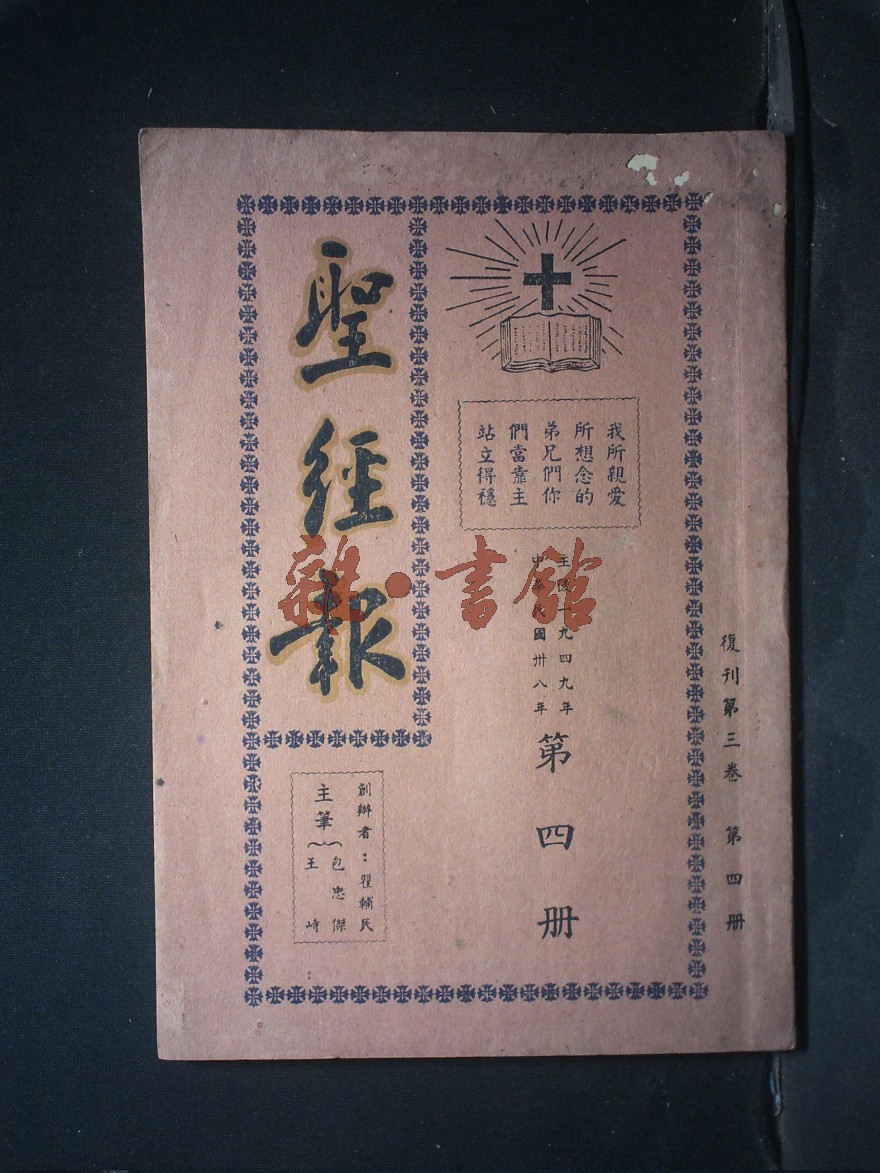 復刊第三卷　第四册
我所親愛
所想念的
弟兄們你
們當靠主
站立得穩
主後一九四九年
中華民國卅八年
第四册
聖經報
創辦者：翟輔民
主筆
包忠傑
王峙
雜·書館